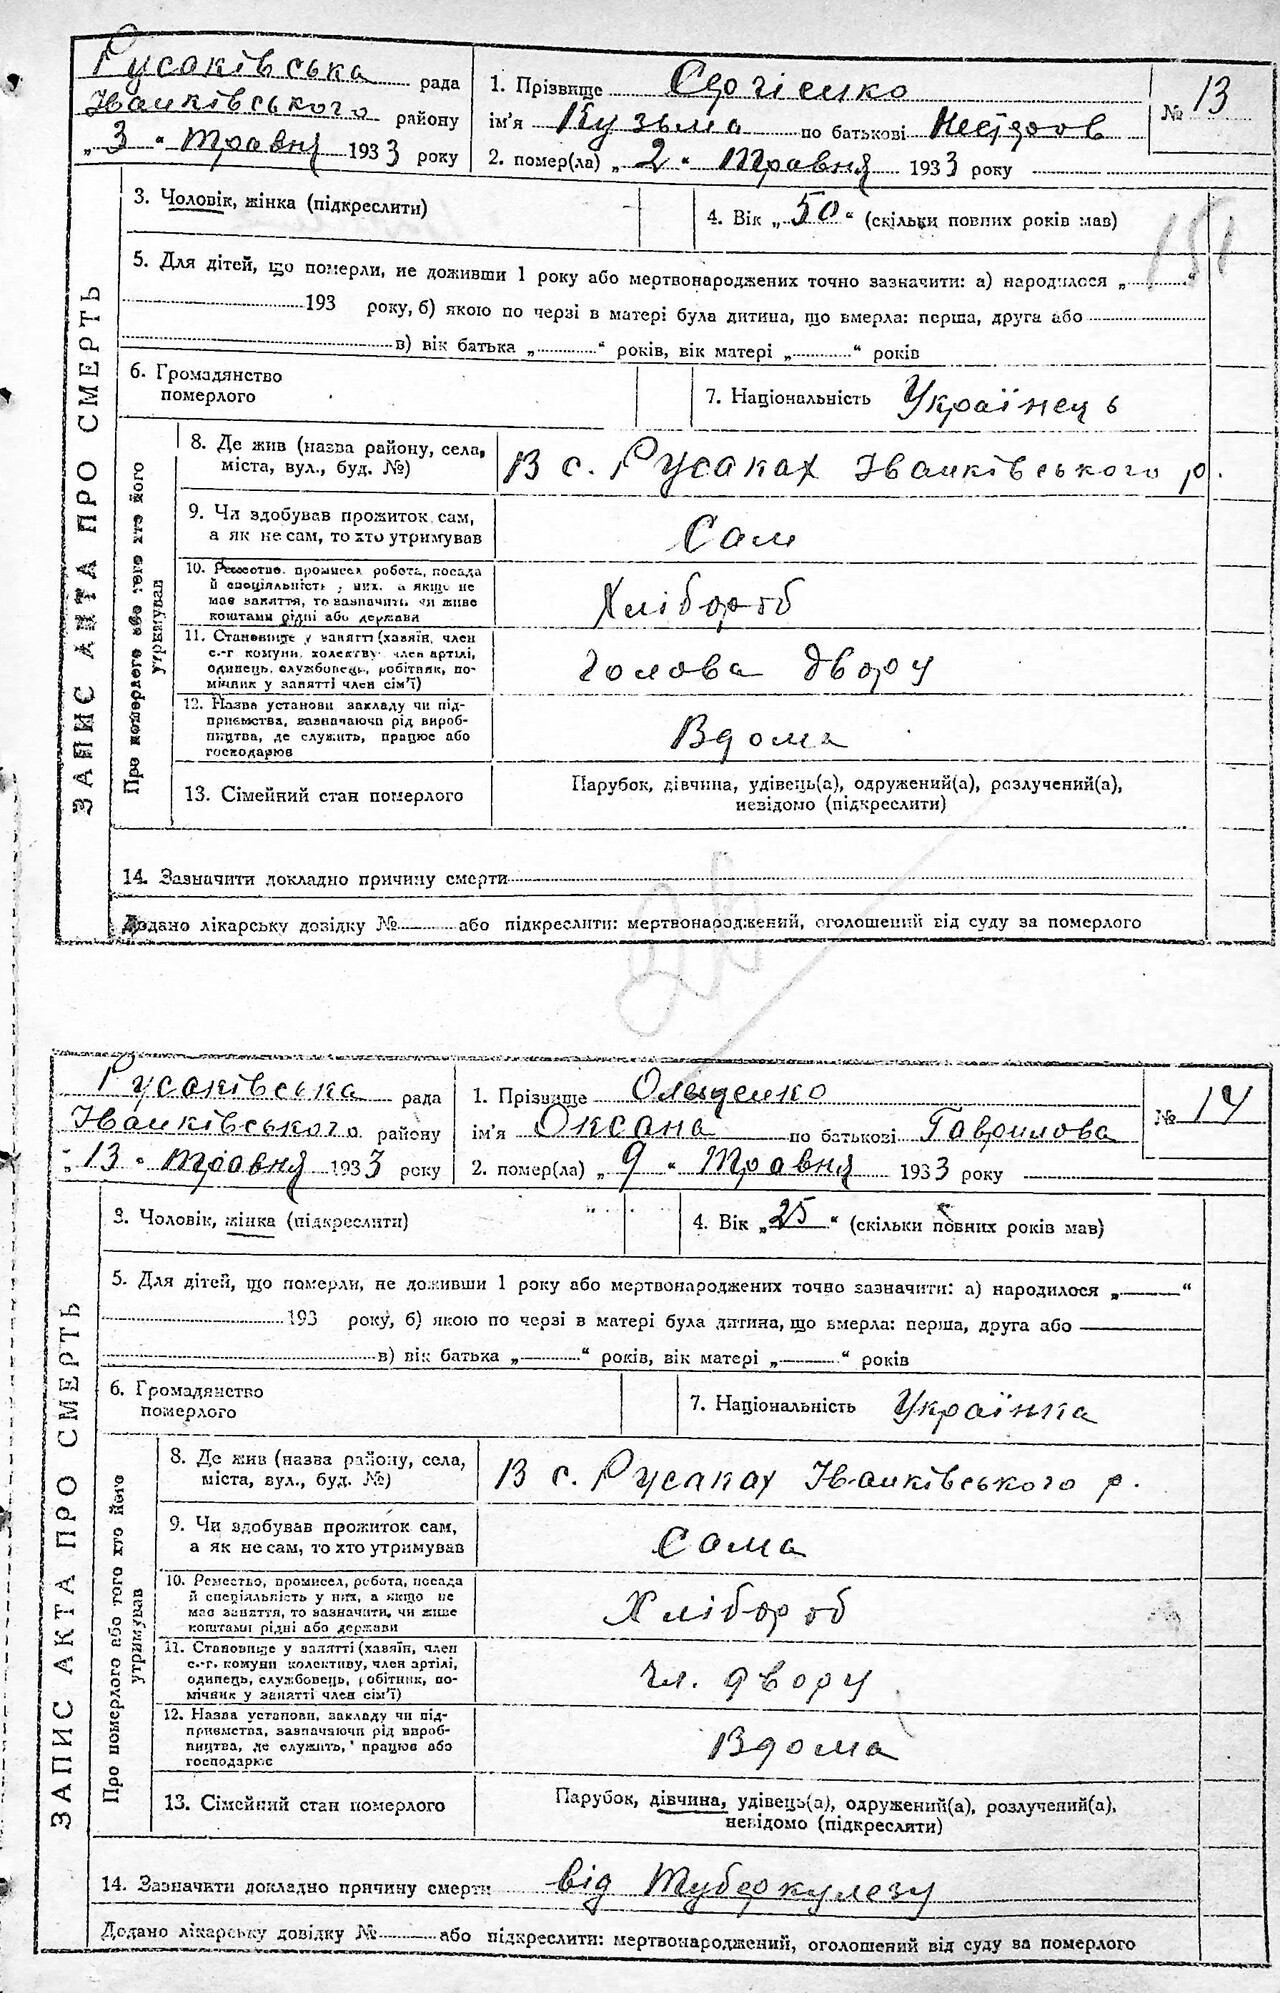 Русаківська рада
Іванківського району
„ 3 " травня 1933 року
1. Прізвище Сергієнко
ім'я Кузьма по батькові
2. помер(ла) „ 2 " травня 1933 року
№ 13
3. Чоловік, жінка (підкреслити)
4. Вік „ 50 " (скільки повних років мав)
151
5. Для дітей, що померли, не доживши 1 року або мертвонароджених точно зазначити: а) народилося „ "
193 року, б) якою по черзі в матері була дитина, що вмерла: перша, друга або
в) вік батька „ " років, вік матері „ " років
6. Громадянство
померлого
7. Національність Українець
ЗАПИС АКТА ПРО СМЕРТЬ
Про померлого або того хто його
утримував
8. Де жив (назва району, села,
міста, вул., буд. №)
В с. Русаках Іванківського р.
9. Чи здобував прожиток сам,
а як не сам, то хто утримував
Сам
10. Ремество, промисел, робота, посада
й спеціяльність у них, а якщо не
має заняття, то зазначить, чи живе
коштами рідні або держави
Хлібороб
11. Становище у занятті (хазяїн, член
с.-г. комуни, колективу, член артілі,
одинець, службовець, робітник, по-
мічник у занятті член сім'ї)
Голова двору
12. Назва установи закладу чи під-
приємства, зазначаючи рід вироб-
ництва, де служить, працює або
господарює
Вдома
13. Сімейний стан померлого
Парубок, дівчина, удівець(а), одружений(а), розлучений(а),
невідомо (підкреслити)
14. Зазначити докладно причину смерти
Додано лікарську довідку № або підкреслити: мертвонароджений, оголошений від суду за померлого
Русаківська рада
Іванківського району
„ 13 " травня 1933 року
1. Прізвище Ольщенко
ім'я Оксана по батькові Гаврилова
2. помер(ла) „ 9 " травня 1933 року
№ 14
3. Чоловік, жінка (підкреслити)
4. Вік „ 25 " (скільки повних років мав)
5. Для дітей, що померли, не доживши 1 року або мертвонароджених точно зазначити: а) народилося „ "
193 року, б) якою по черзі в матері була дитина, що вмерла: перша, друга або
в) вік батька „ " років, вік матері „ " років
6. Громадянство
померлого
7. Національність Українка
ЗАПИС АКТА ПРО СМЕРТЬ
Про померлого або того хто його
утримував
8. Де жив (назва району, села,
міста, вул., буд. №)
В с. Русаках Іванківського р.
9. Чи здобував прожиток сам,
а як не сам, то хто утримував
Сама
10. Ремество, промисел, робота, посада
й спеціяльність у них, а якщо не
має заняття, то зазначити, чи живе
коштами рідні або держави
Хлібороб
11. Становище у занятті (хазяїн, член
с.-г. комуни колективу, член артілі,
одинець, службовець, робітник, по-
мічник у занятті член сім'ї)
чл. двору
12. Назва установи, закладу чи під-
приємства, зазначаючи рід вироб-
ництва, де служить, працює або
господарює
Вдома
13. Сімейний стан померлого
Парубок, дівчина, удівець(а), одружений(а), розлучений(а),
невідомо (підкреслити)
14. Зазначити докладно причину смерти від туберкулезу
Додано лікарську довідку № або підкреслити: мертвонароджений, оголошений від суду за померлого